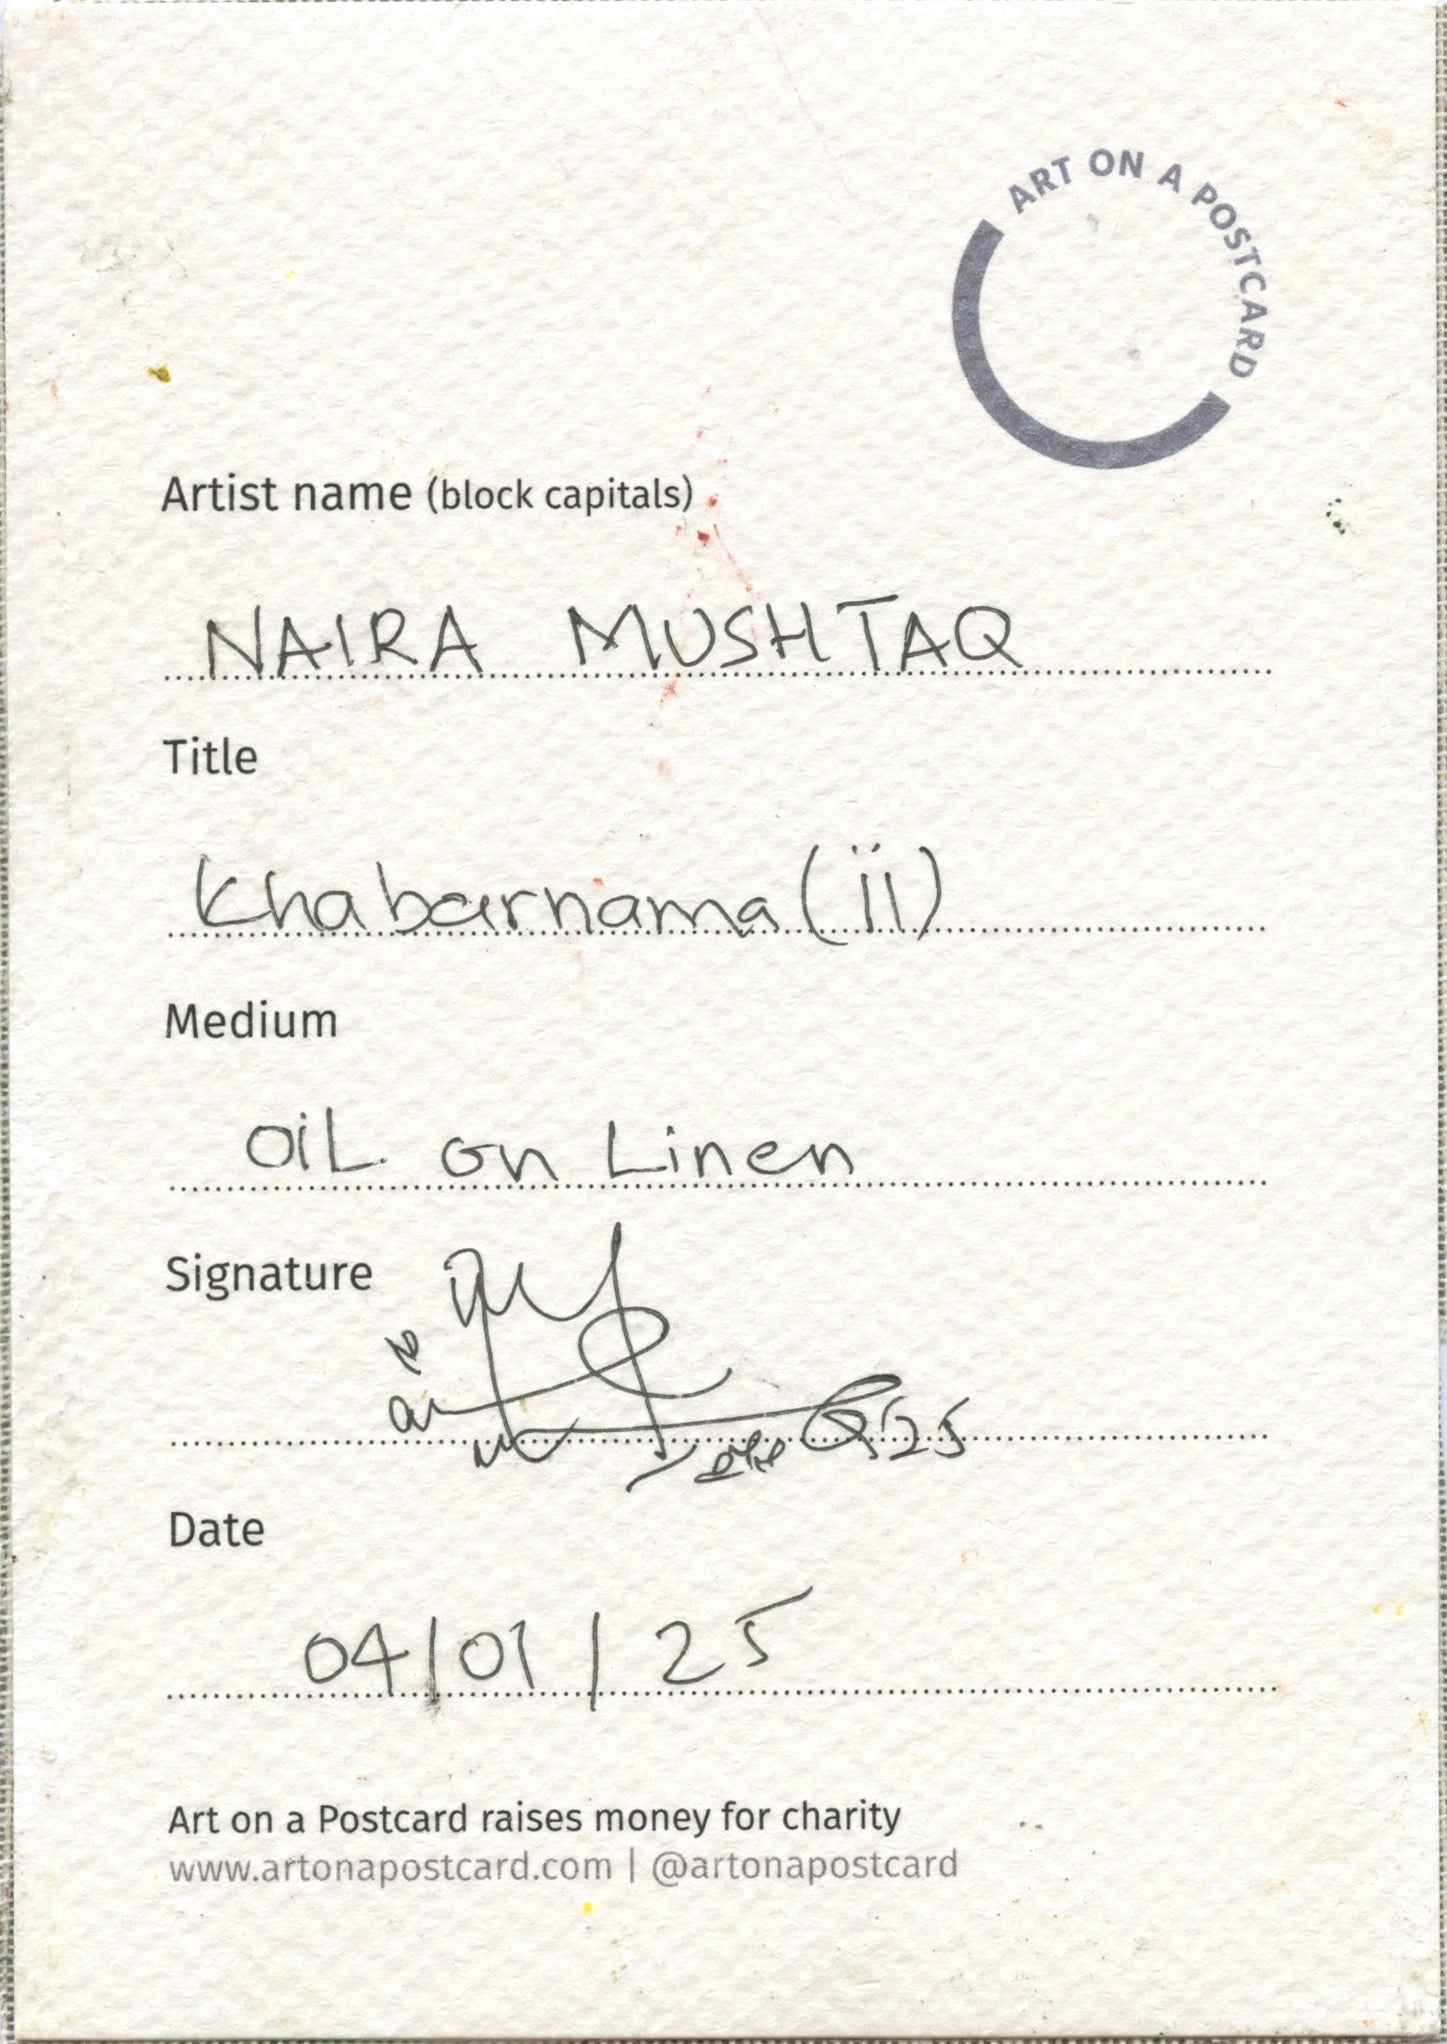 ART ON A POSTCARD
Artist name (block capitals)
NAIRA MUSHTAQ
Title
Khabarnama (ii)
Medium
OiL on Linen
Signature
25
Date
04/01/25
Art on a Postcard raises money for charity
www.artonapostcard.com | @artonapostcard